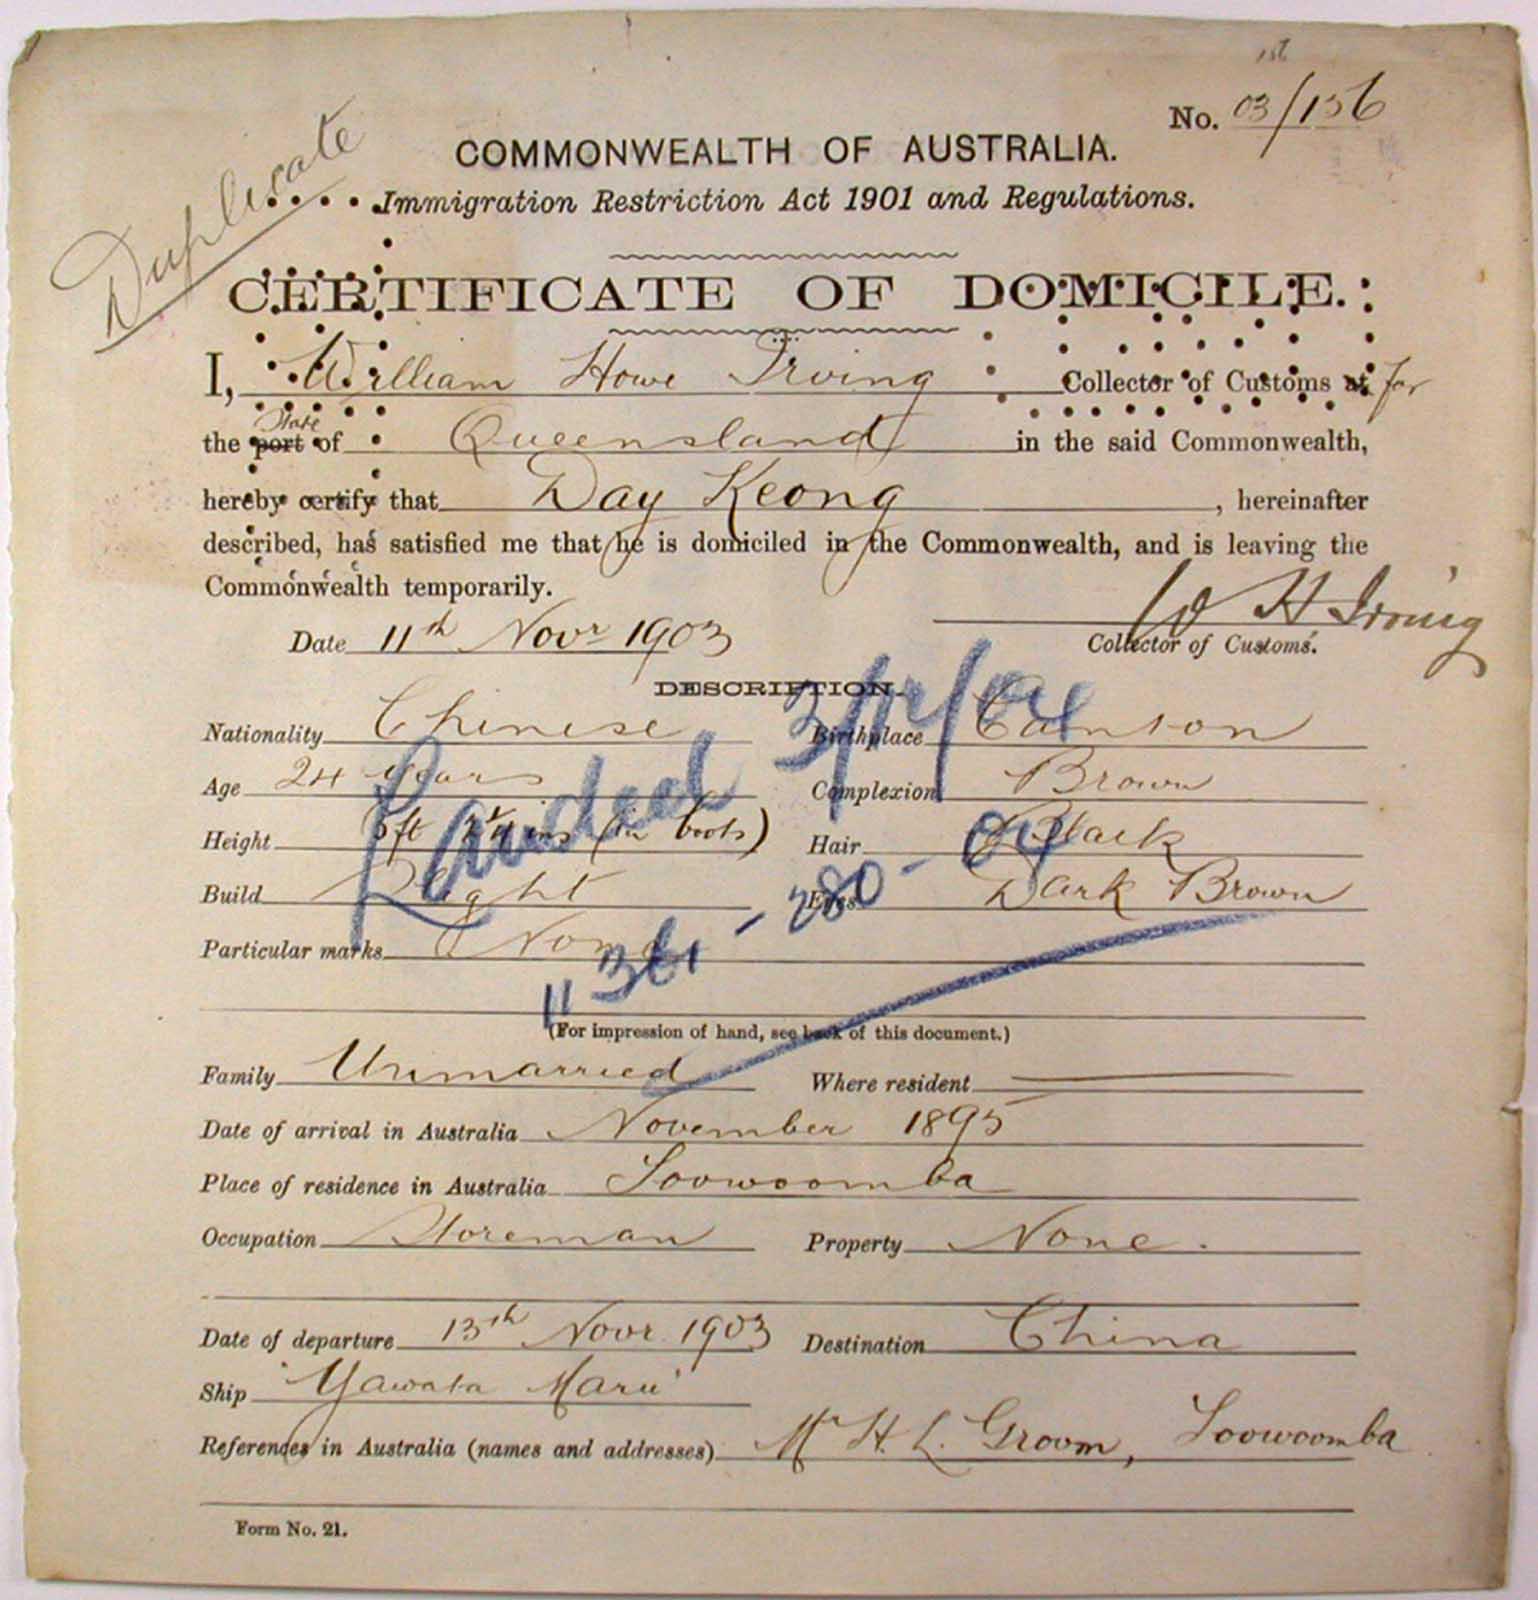 1st
No. 03/156
Duplicate
COMMONWEALTH OF AUSTRALIA.
Immigration Restriction Act 1901 and Regulations.
CERTIFICATE OF DOMICILE.
I, William Howe Irving Collector of Customs at for
the port State of Queensland in the said Commonwealth,
hereby certify that Day Keong , hereinafter
described, has satisfied me that he is domiciled in the Commonwealth, and is leaving the
Commonwealth temporarily.
W H Irving
Date 11th Novr 1903 Collector of Customs.
DESCRIPTION.
Nationality Chinese Birthplace Canton
Age 24 years Complexion Brown
Height 5ft (in boots) Hair Black
Build Slight Eyes Dark Brown
Particular marks None
Landed 3/12/04
(For impression of hand, see back of this document.)
Family Unmarried Where resident
Date of arrival in Australia November 1895
Place of residence in Australia Toowoomba
Occupation Storeman Property None.
Date of departure 13th Novr 1903 Destination China
Ship "Yawata Maru"
References in Australia (names and addresses) Mr H. L. Groom, Toowoomba
Form No. 21.